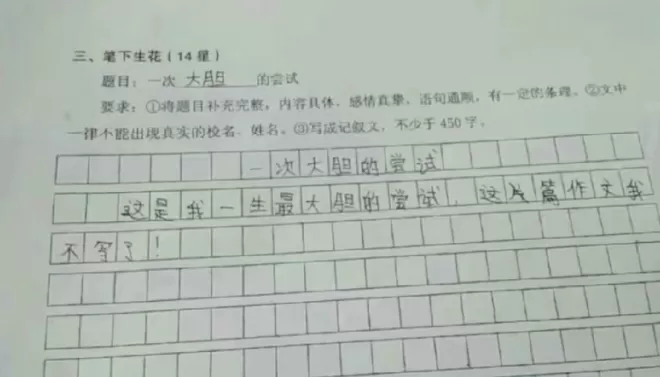 三、笔下生花(14星)
题目:一次 大胆 的尝试
要求:①将题目补充完整,内容具体,感情真挚,语句通顺,有一定的条理。②文中
一律不能出现真实的校名、姓名。③写成记叙文,不少于450字。
一次大胆的尝试
这是我一生最大胆的尝试,这篇作文我
不写了!